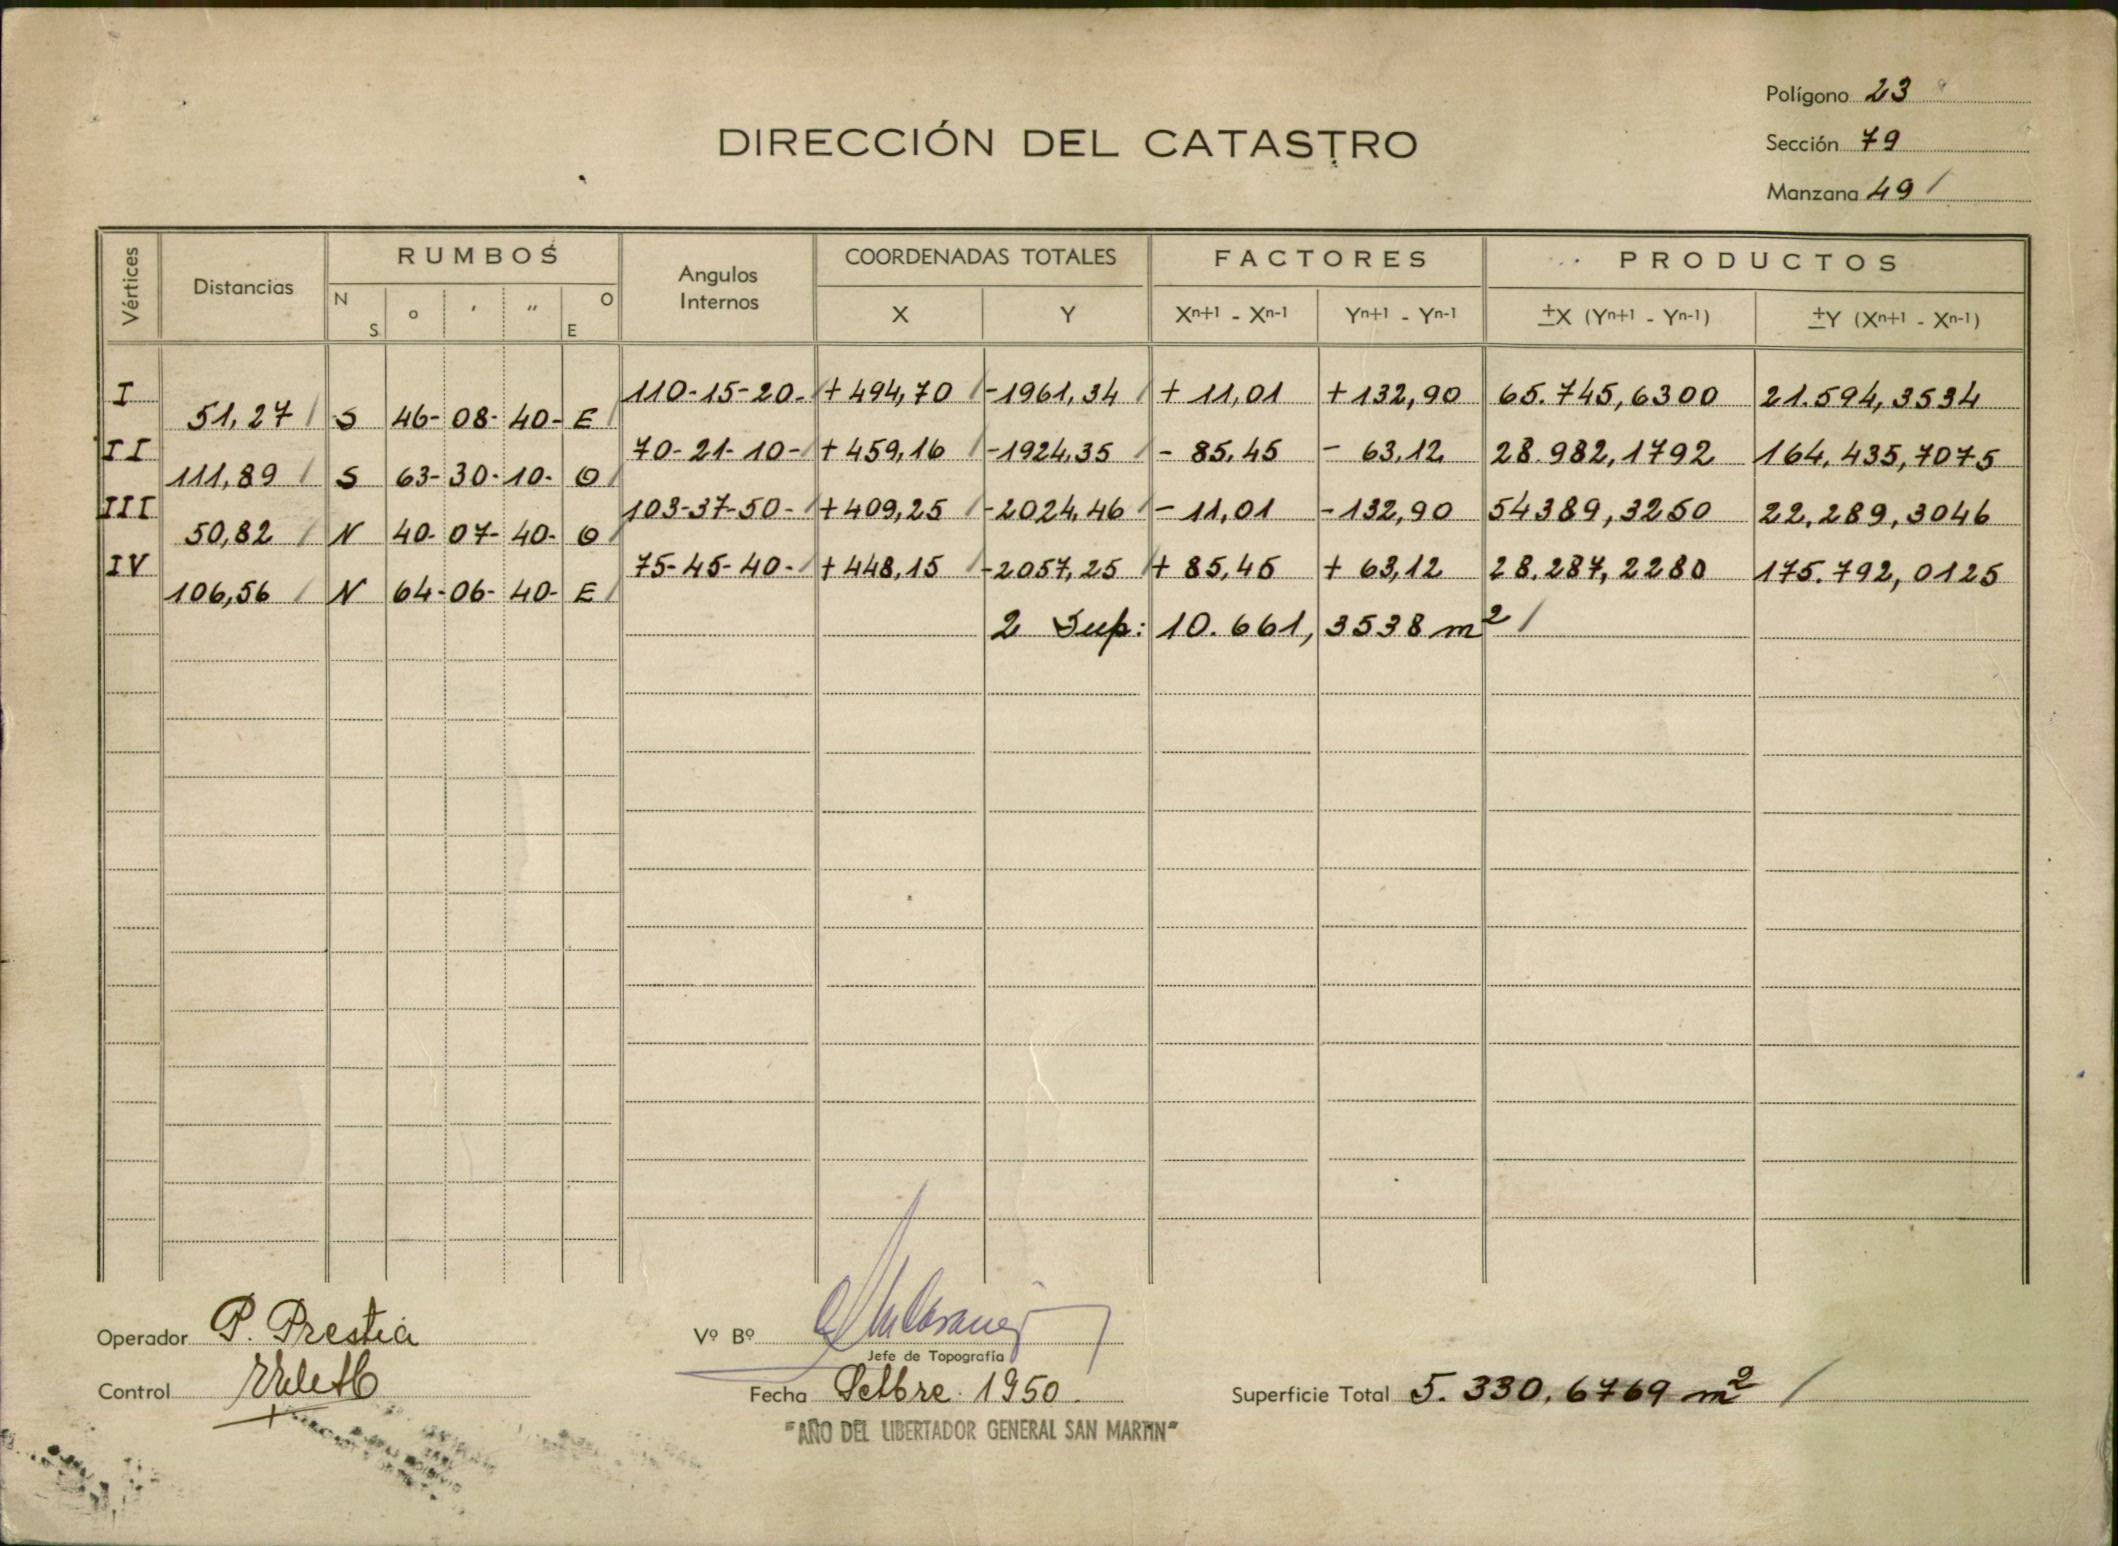 Polígono 23
DIRECCIÓN DEL CATASTRO
Sección 79
Manzana 49 /
Vértices Distancias RUMBOS Angulos Internos COORDENADAS TOTALES FACTORES PRODUCTOS
N S ° ' " O E X Y Xⁿ⁺¹ - Xⁿ⁻¹ Yⁿ⁺¹ - Yⁿ⁻¹ ±X (Yⁿ⁺¹ - Yⁿ⁻¹) ±Y (Xⁿ⁺¹ - Xⁿ⁻¹)
I 110-15-20- / +494,70 / -1961,34 / + 11,01 +132,90 65.745,6300 21.594,3534
51,27 / S 46- 08- 40- E /
II 70-21-10- / +459,16 / -1924,35 / - 85,45 - 63,12 28.982,1792 164.435,7075
111,89 / S 63- 30- 10- O /
III 103-37-50- / +409,25 / -2024,46 / - 11,01 -132,90 54389,3250 22.289,3046
50,82 / N 40- 07- 40- O /
IV 75-45-40- / +448,15 / -2057,25 / + 85,45 + 63,12 28.287,2280 175.792,0125
106,56 / N 64- 06- 40- E /
2 Sup: 10.661,3538 m² /
Operador P. Prestia
Vº Bº
Jefe de Topografía
Control
Fecha Setbre. 1950.
Superficie Total 5.330,6769 m² /
"AÑO DEL LIBERTADOR GENERAL SAN MARTIN"